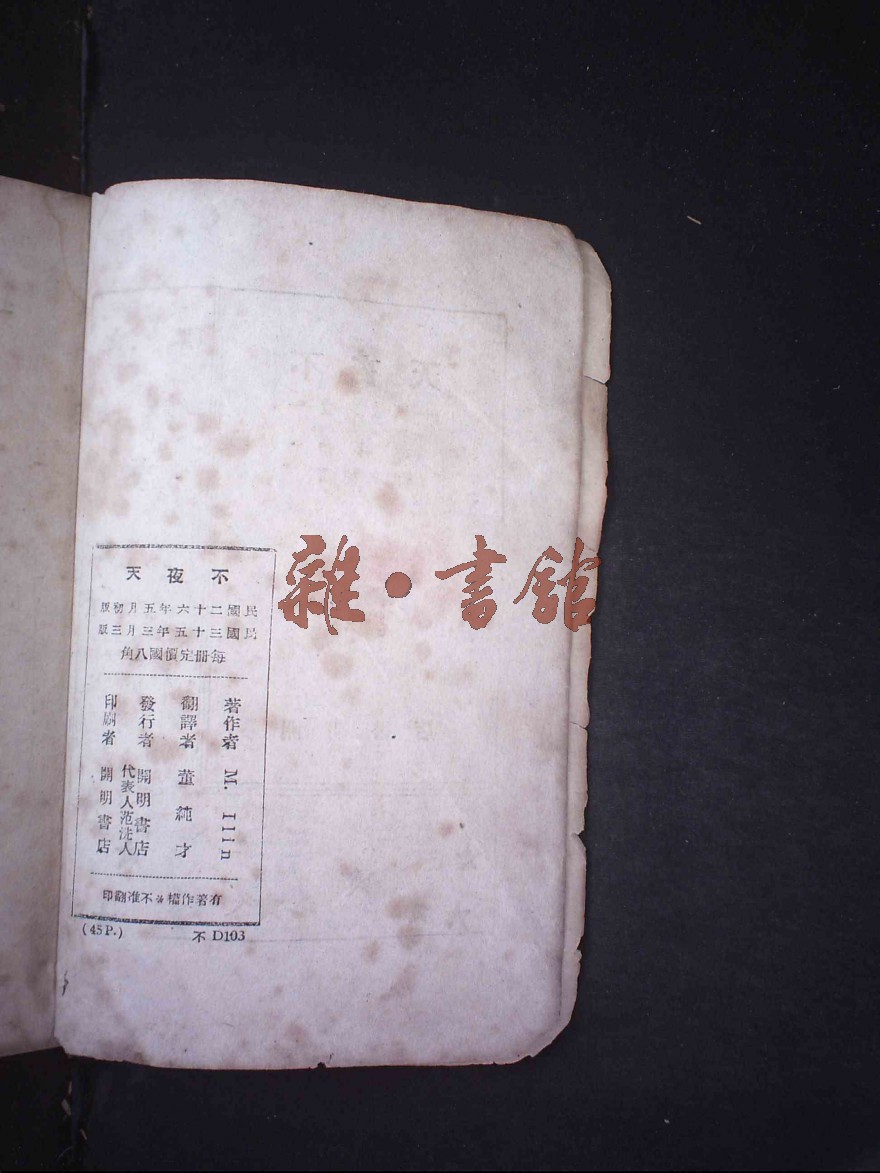 不夜天
民國二十六年五月初版
民國三十五年三月三版
每冊定價國八角
著作者 M. Ilin
翻譯者 董純才
發行者 開明書店
代表人范洗人
印刷者 開明書店
有著作權※不准翻印
(45P.) 不 D103
雜·書館